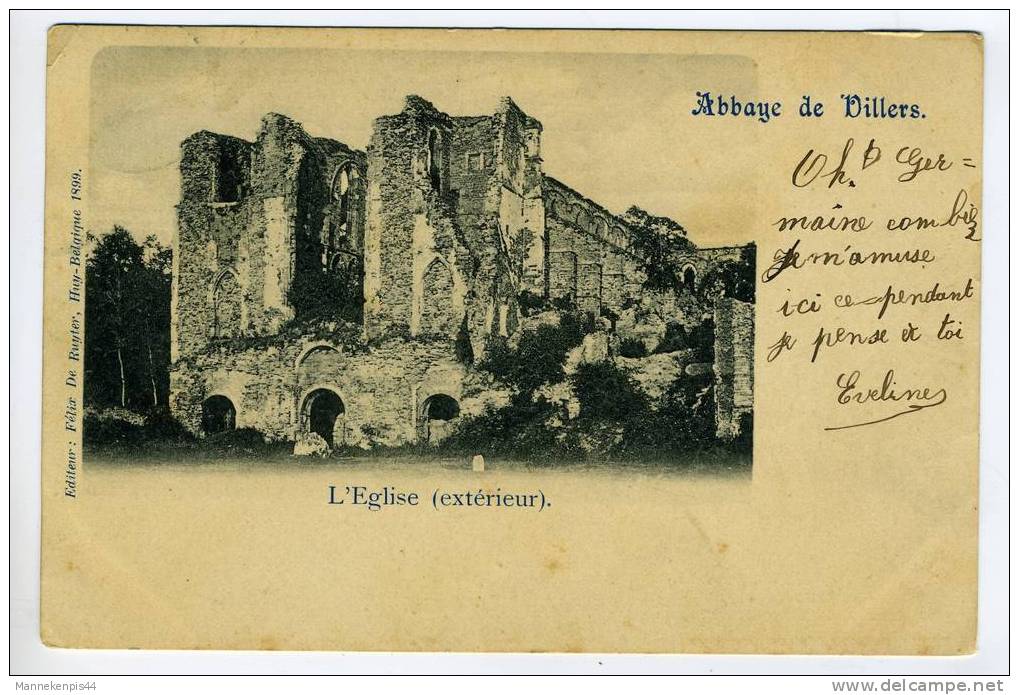 Abbaye de Villers.
Oh. Ger=
maine combien
je m'amuse
ici ce-pendant
je pense à toi
Eveline
Editeur: Félix De Ruyter, Huy-Belgique 1899.
L'Eglise (extérieur).
Mannekenpis44
www.delcampe.net